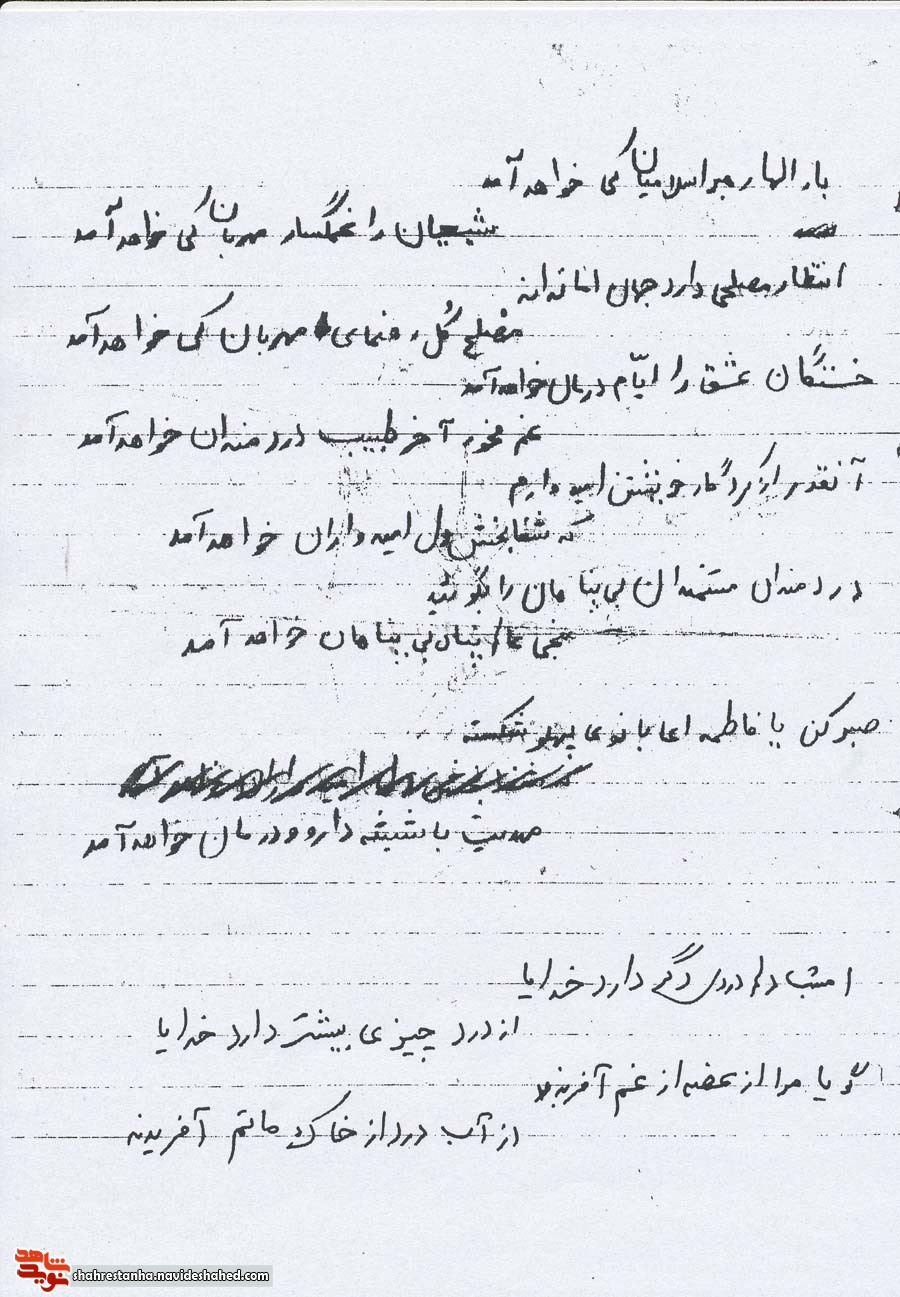 بار الها رهبر اسلامیان کی خواهد آمد
شیعیان را غمگسار مهربان کی خواهد آمد
انتظار مصلحی دارد جهان
مصلح کل رهنمای مهربان کی خواهد آمد
خستگان عشق را ایّام درمان خواهد آمد
غم مخور آخر طبیب دردمندان خواهد آمد
آنقدر از کردگار خویشتن امید دارم
که شفابخش دل امیدواران خواهد آمد
دردمندان مستمندان بی پناهان را بگوئید
منجی عالم پناه بی پناهان خواهد آمد
صبر کن یا فاطمه ای بانوی پهلو شکسته
مهدیت با شیشه دارو و درمان خواهد آمد
امشب دلم دردی دگر دارد خدایا
از درد چیزی بیشتر دارد خدایا
گویا مرا از غصه از غم آفریدند
از آب درد از خاک ماتم آفریدند
نوید شاهد
shahrestanha.navideshahed.com